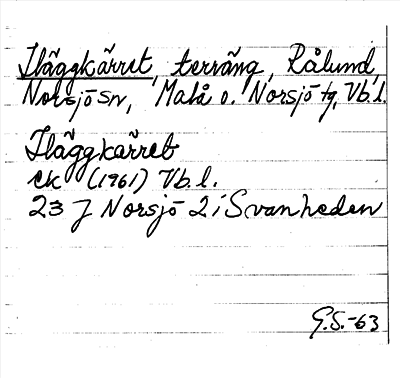 Fläggkärret, terräng, Rålund,
Norsjö sn, Malå o. Norsjö tg, Vb.l.
Fläggkärret
ek (1961) Vb.l.
23 J Norsjö 2 i Svanheden
G.S.-63